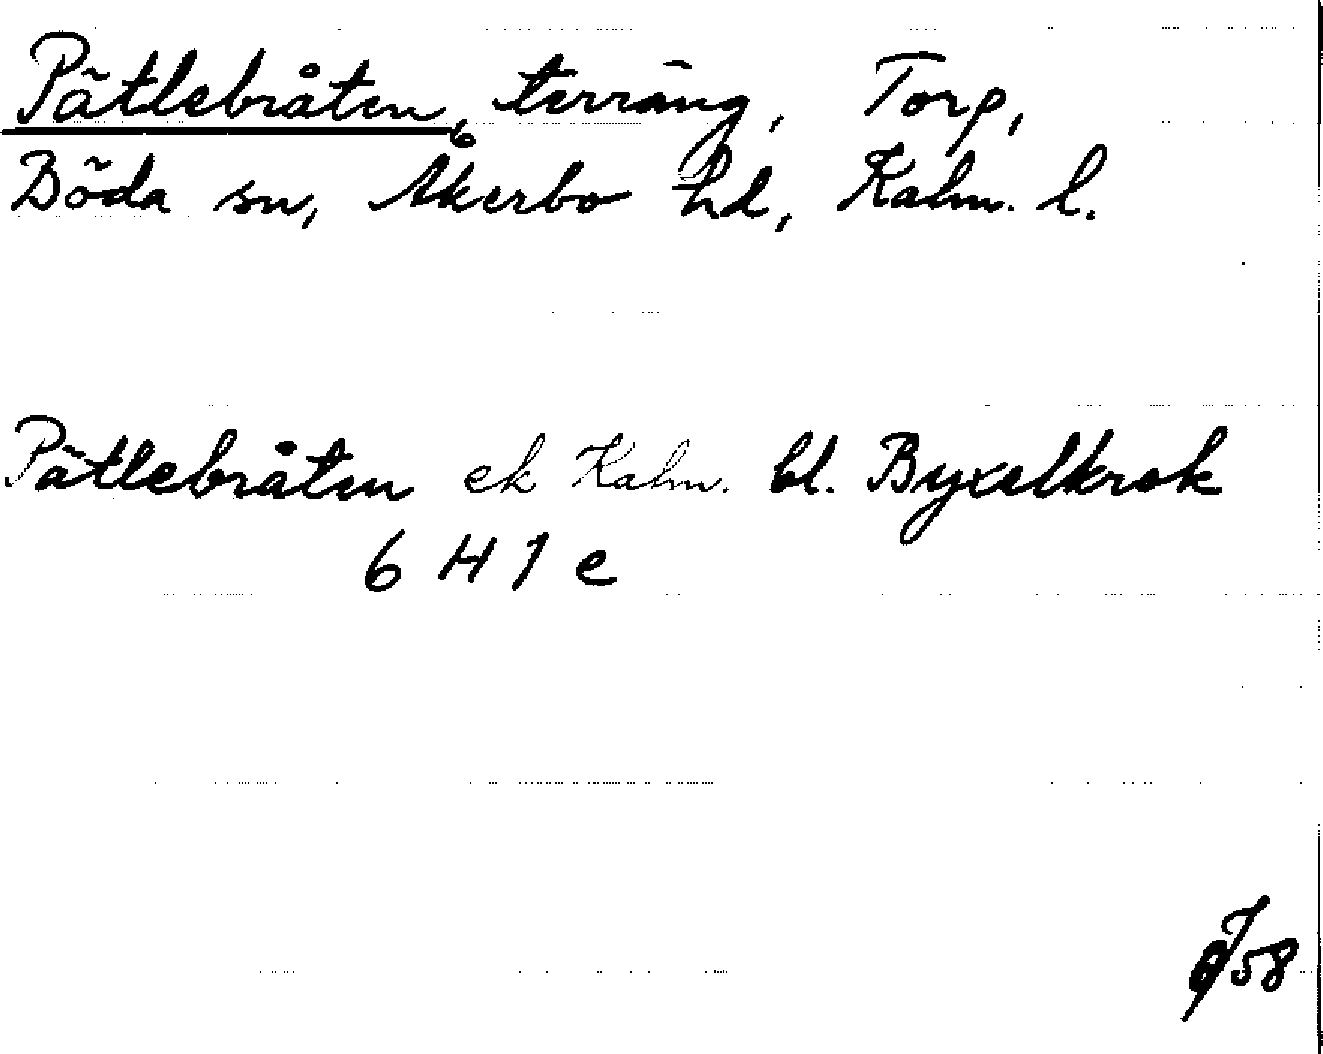 Pätlebråten, terräng, Torp,
Böda sn, Åkerbo hd, Kalm. l.
Pätlebråten ek Kalm. bl. Byxelkrok
6 H 1 e
58